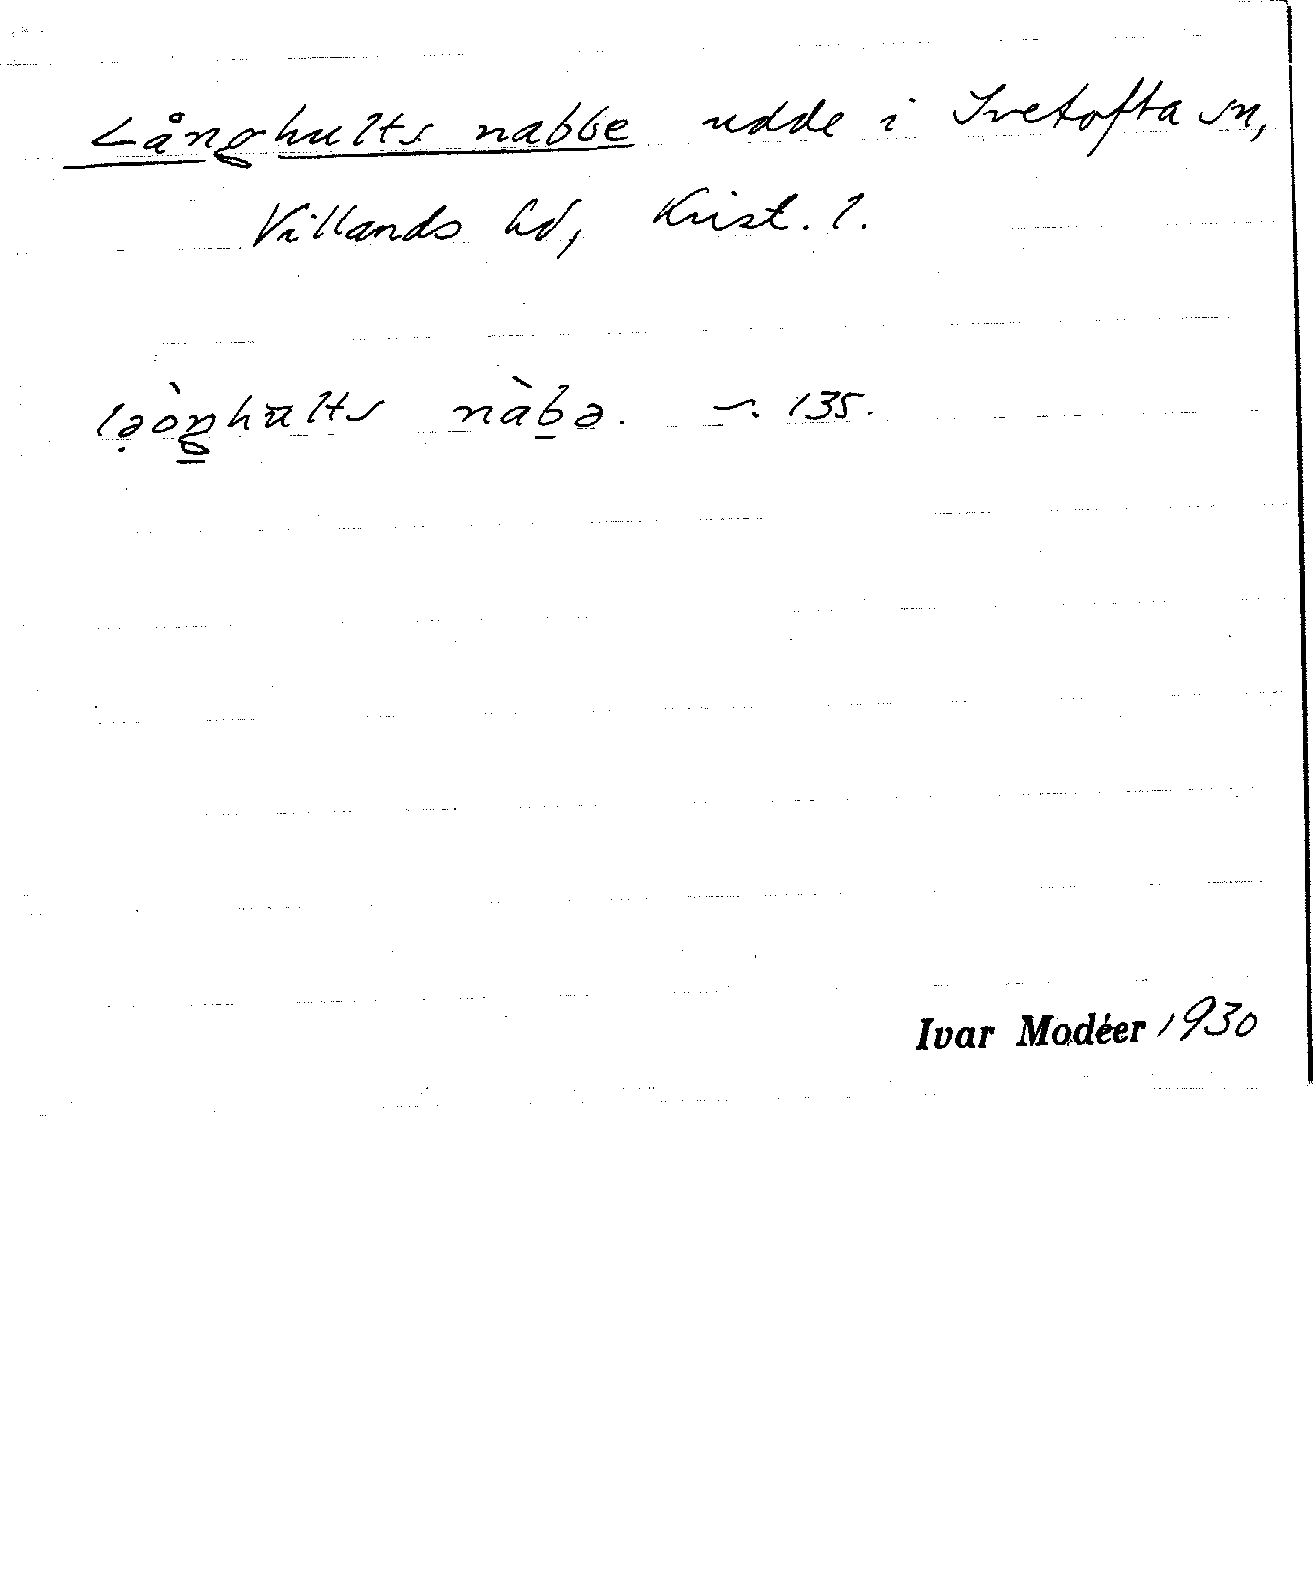 Långhults nabbe udde i Ivetofta sn,
Villands hd, Krist. l.
lə̣òŋhults nàbə. ∽. 135.
Ivar Modéer 1930